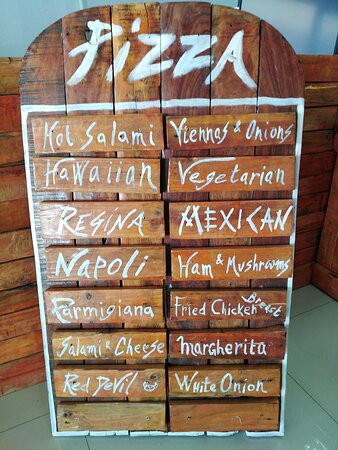 PIZZA
Hot Salami
Viennas & Onions
Hawaiian
Vegetarian
REGINA
MEXICAN
NAPOLi
Ham & Mushrooms
Parmigiana
Fried Chicken Breast
Salami & Cheese
Margherita
Red Devil
White Onion